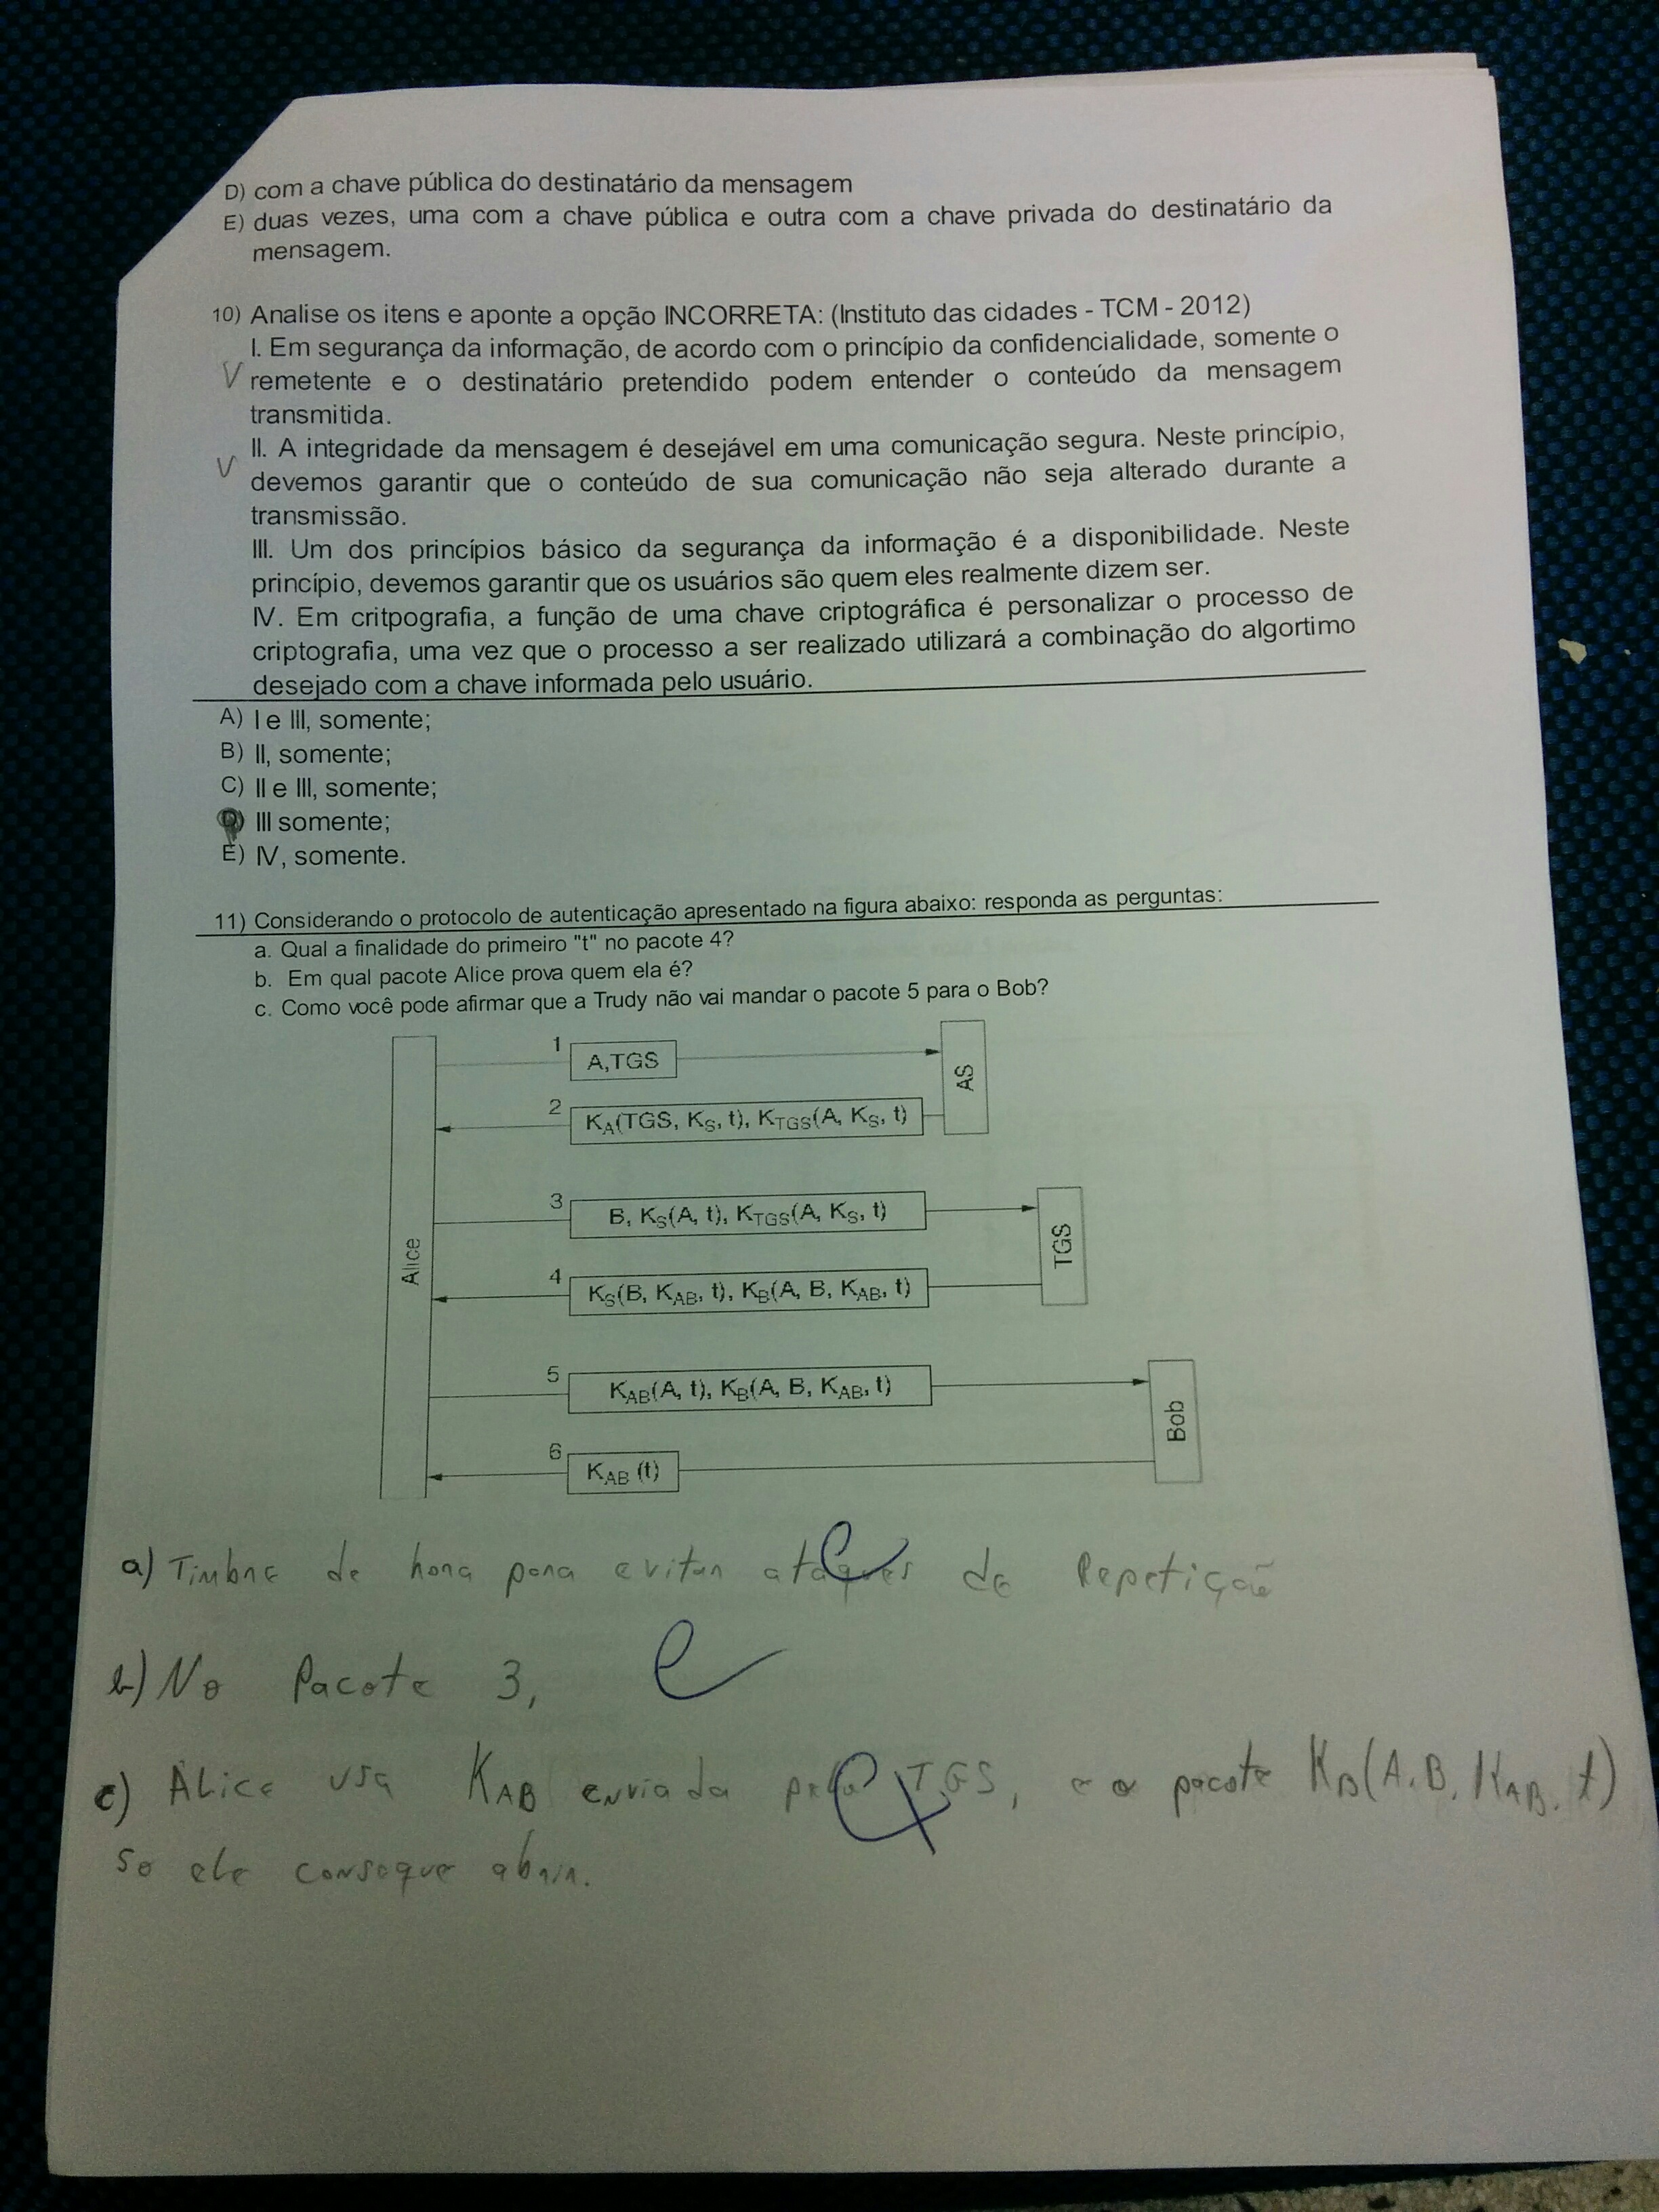 D) com a chave pública do destinatário da mensagem
E) duas vezes, uma com a chave pública e outra com a chave privada do destinatário da
mensagem.
10) Analise os itens e aponte a opção INCORRETA: (Instituto das cidades - TCM - 2012)
I. Em segurança da informação, de acordo com o princípio da confidencialidade, somente o
V remetente e o destinatário pretendido podem entender o conteúdo da mensagem
transmitida.
II. A integridade da mensagem é desejável em uma comunicação segura. Neste princípio,
V devemos garantir que o conteúdo de sua comunicação não seja alterado durante a
transmissão.
III. Um dos princípios básico da segurança da informação é a disponibilidade. Neste
princípio, devemos garantir que os usuários são quem eles realmente dizem ser.
IV. Em critpografia, a função de uma chave criptográfica é personalizar o processo de
criptografia, uma vez que o processo a ser realizado utilizará a combinação do algortimo
desejado com a chave informada pelo usuário.
A) I e III, somente;
B) II, somente;
C) II e III, somente;
D) III somente;
E) IV, somente.
11) Considerando o protocolo de autenticação apresentado na figura abaixo: responda as perguntas:
a. Qual a finalidade do primeiro "t" no pacote 4?
b. Em qual pacote Alice prova quem ela é?
c. Como você pode afirmar que a Trudy não vai mandar o pacote 5 para o Bob?
Alice
1 A,TGS
AS
2 KA(TGS, KS, t), KTGS(A, KS, t)
3 B, KS(A, t), KTGS(A, KS, t)
TGS
4 KS(B, KAB, t), KB(A, B, KAB, t)
5 KAB(A, t), KB(A, B, KAB, t)
Bob
6 KAB (t)
a) Timbre de hora para evitar ataques de Repetição
b) No Pacote 3,
c) Alice usa KAB enviada pelo TGS, e o pacote KB(A, B, KAB, t)
so ele consegue abrir.